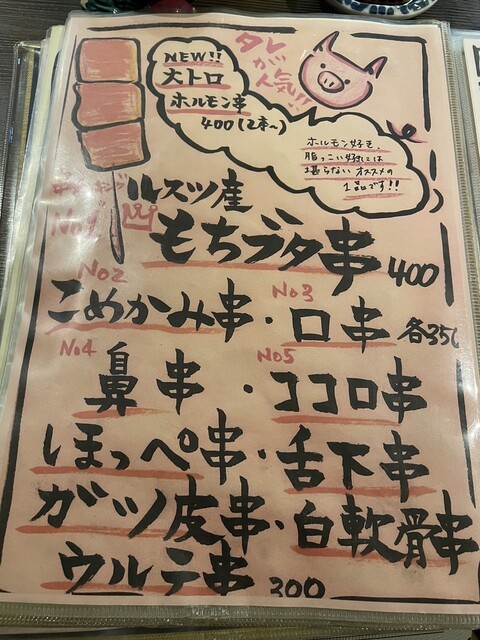 NEW!!
大トロ
ホルモン串
400(2本~)
タレ
が
人気!!
ホルモン好き、
脂っこい好きには
堪らないオススメの
1品です!!
ルスツ産
No1
もちブタ串 400
No2 No3
こめかみ串・口串 各350
No4 No5
鼻串・ココロ串
ほっぺ串・舌下串
ガツ皮串・白軟骨串
ウルテ串 300